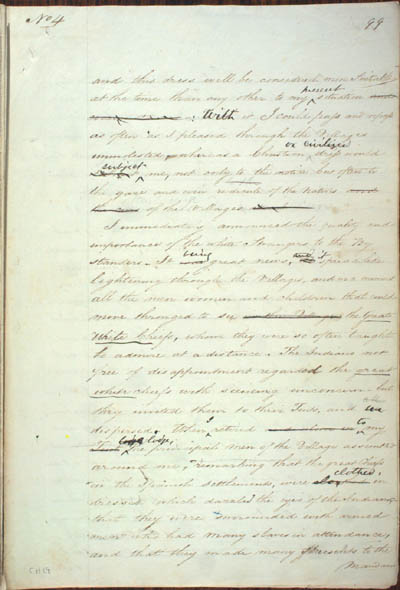 No 4
99
and this dress will be considered more suitable
at the time than any other to my present situation
With it I could pass and repass
as often as I pleased through the Villages
unmolested, whereas a Christian or civilized dress would
subject me, not only to the notice but often to
the gaze and even ridicule of the Natives
of the Villages
I immediately announced the quality and
importance of the white Strangers to the By
standers. It being great news, it spread like
lightening through the Villages, and in a moment
all the men women and children that could
move thronged to see the Great
White Chiefs, whom they were so often taught
to admire at a distance. The Indians not
free of disappointment regarded the great
white chiefs with seeming unconcern but
they invited them to their Tents, and
dispersed. When I retired to my
lodge, the principal men of the Village assembled
around me, remarking that the great Chiefs
in the Spanish settlements, were clothed in
dresses which dazzled the eyes of the Indians
that they were surrounded with armed
men who had many slaves in attendance,
and that they made many presents to the
Mandans